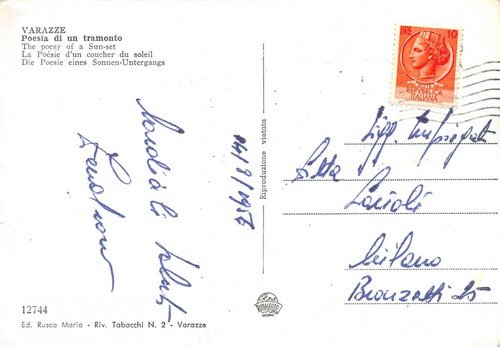 VARAZZE
Poesia di un tramonto
The poesy of a Sun-set
La Poésie d'un coucher du soleil
Die Poesie eines Sonnen-Untergangs
LIRE 10
POSTE
REPUBBLICA
ITALIANA
Cordiali saluti
14/8/1957
Riproduzione vietata
Sigg. Impiegati
Ditta
Milano
Bronzetti 25
12744
Ed. Rusca Maria - Riv. Tabacchi N. 2 - Varazze